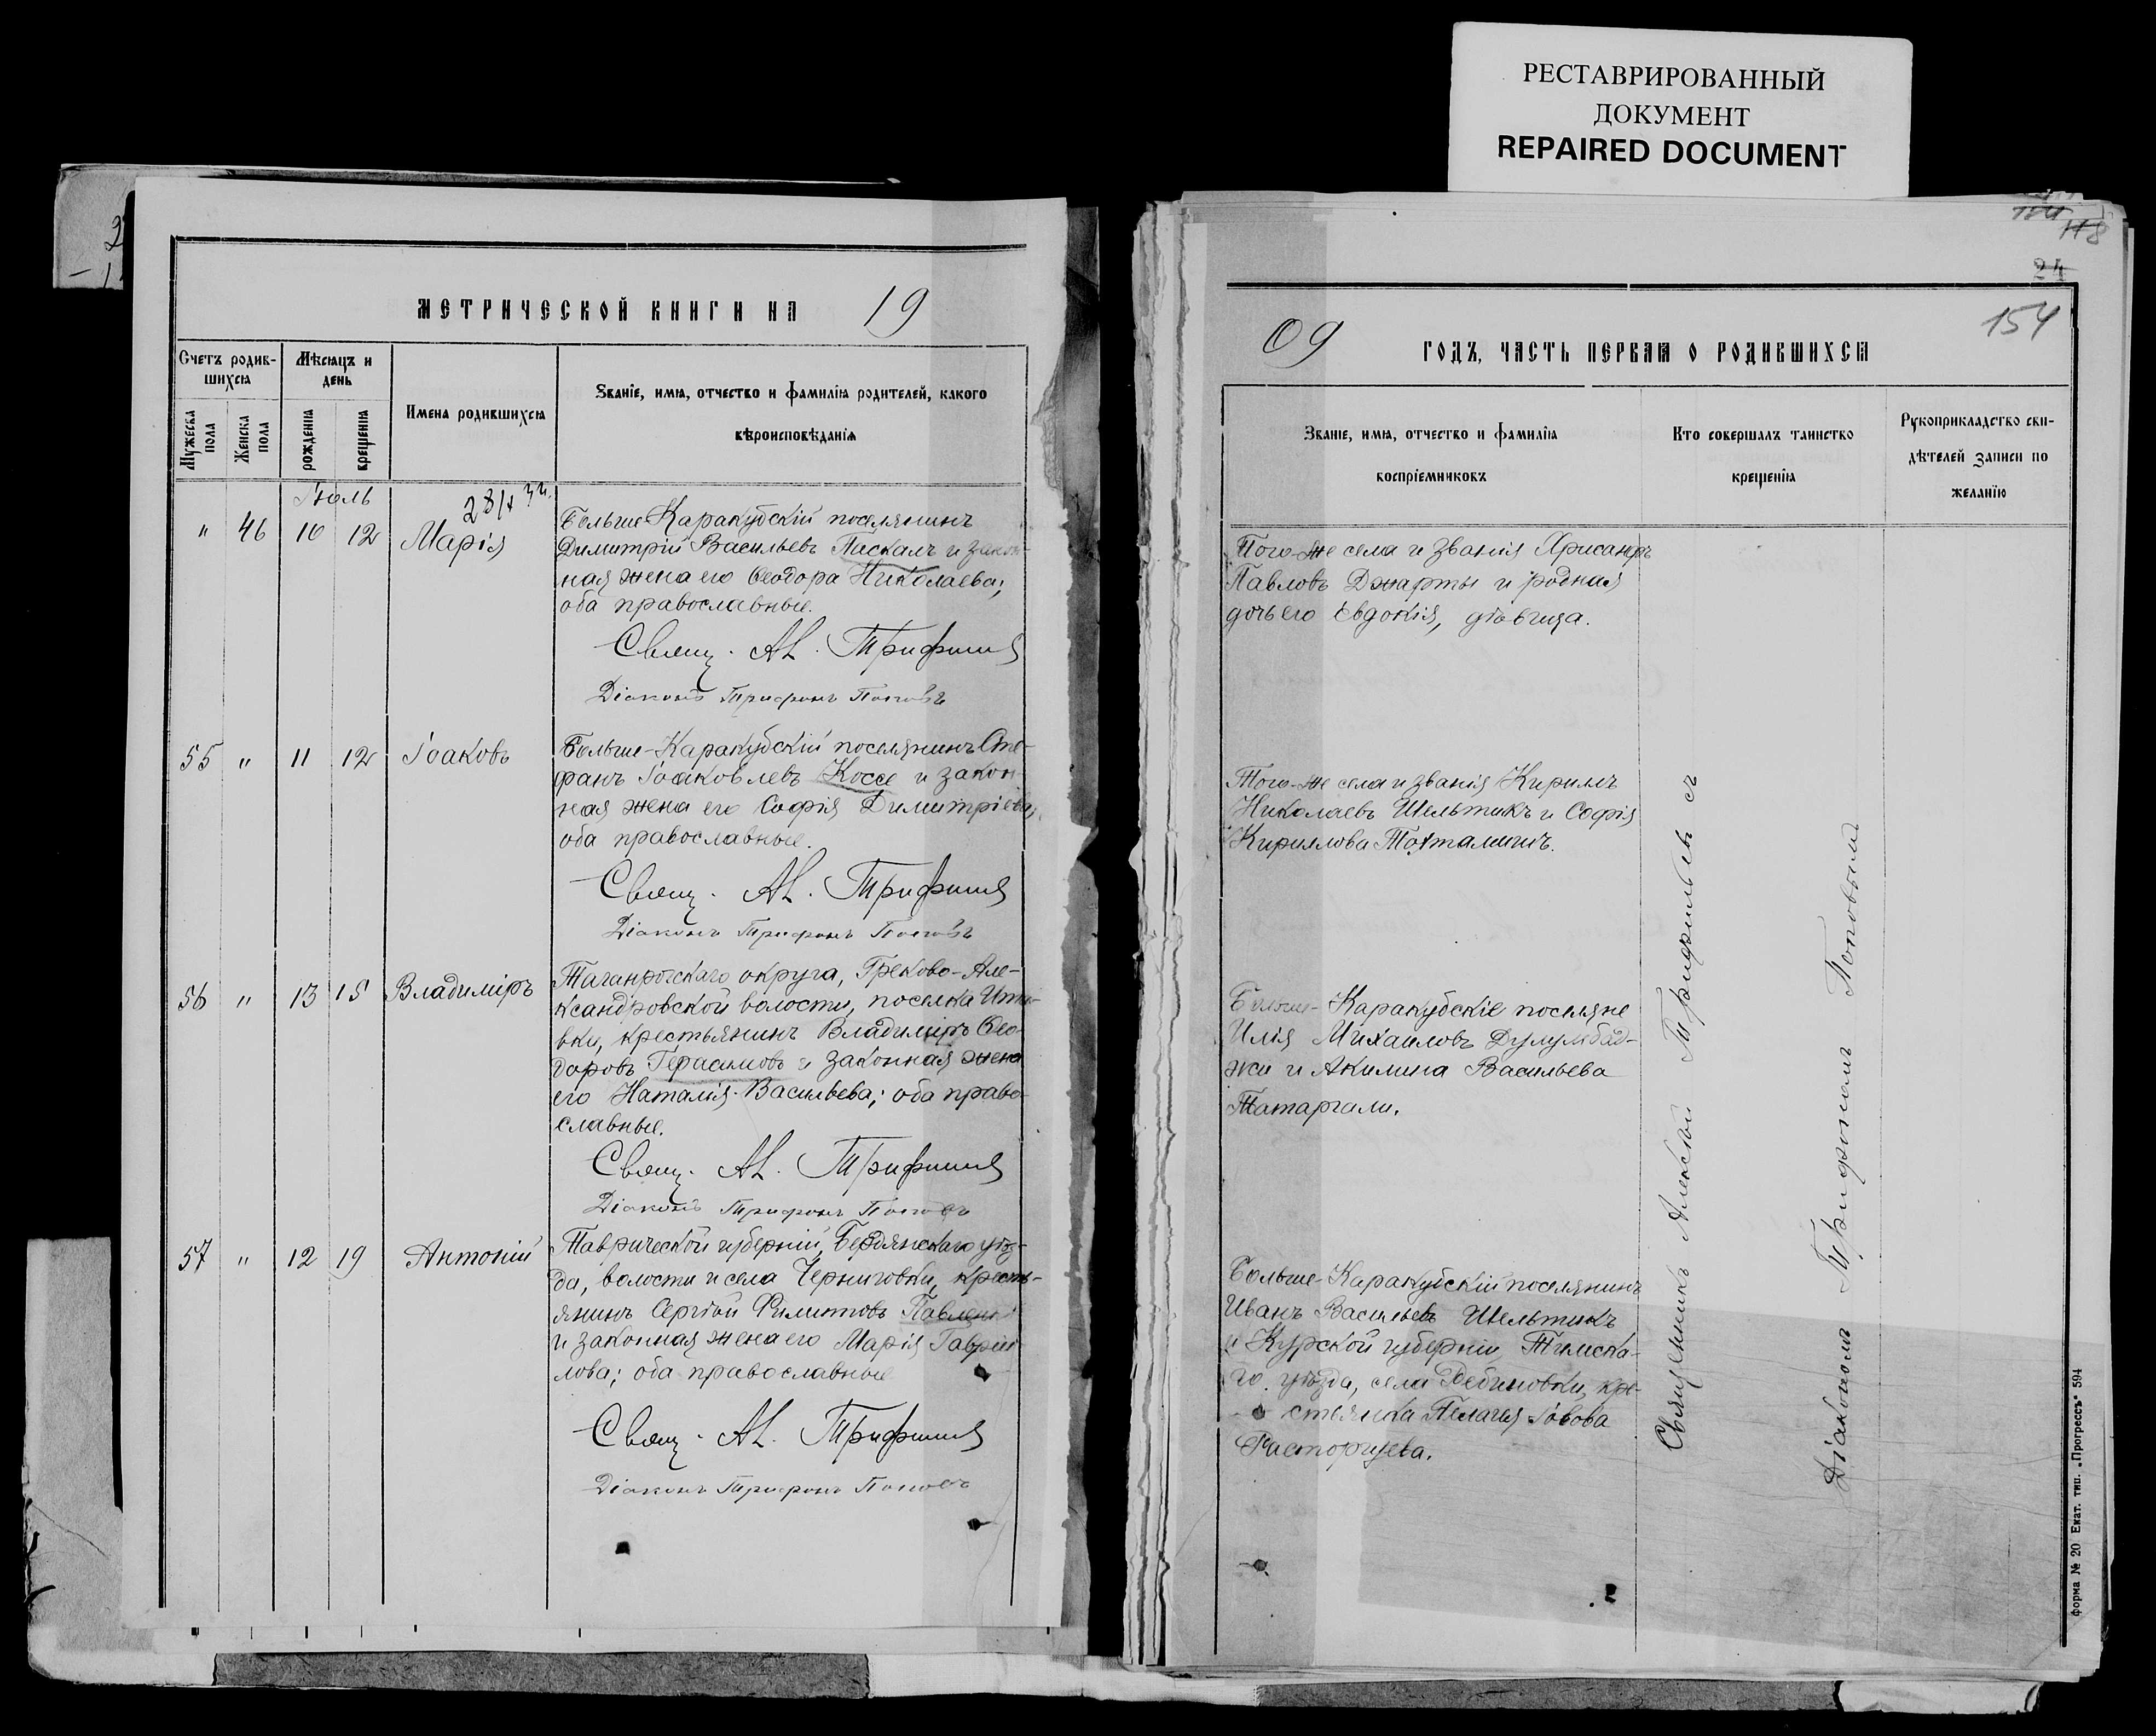 РЕСТАВРИРОВАННЫЙ
ДОКУМЕНТ
REPAIRED DOCUMENT
МЕТРИЧЕСКОЙ КНИГИ НА 19
Счетъ родив-
шихся
Мѣсяцъ и
день
Имена родившихся
Званіе, имя, отчество и фамилія родителей, какого
вѣроисповѣданія
Мужеска пола
Женска пола
рожденія
крещенія
Іюль
" 46 10 12 Марія
Больше-Каракубскій поселянинъ
Димитрій Васильевъ Паскалъ и закон-
ная жена его Ѳеодора Николаева;
оба православные.
Свящ. Ал. Трифильевъ
Діаконъ Трифонъ Поповъ
55 " 11 12 Іоаковъ
Больше-Каракубскій поселянинъ Сте-
фанъ Іоаковлевъ Коссе и закон-
ная жена его Софія Димитріева;
оба православные.
Свящ. Ал. Трифильевъ
Діаконъ Трифонъ Поповъ
56 " 13 15 Владиміръ
Таганрогскаго округа, Греково-Але-
ксандровской волости, поселка
вки, крестьянинъ Владиміръ Ѳео-
доровъ Герасимовъ и законная жена
его Наталія Васильева; оба право-
славные.
Свящ. Ал. Трифильевъ
Діаконъ Трифонъ Поповъ
57 " 12 19 Антоній
Таврической губерніи, Бердянскаго уѣз-
да, волости и села Черниговки, кресть-
янинъ Сергѣй Филиповъ
и законная жена его Марія Гаврии-
лова; оба православные
Свящ. Ал. Трифильевъ
Діаконъ Трифонъ Поповъ
24
154
09 ГОДЪ, ЧАСТЬ ПЕРВАЯ О РОДИВШИХСЯ
Званіе, имя, отчество и фамилія
воспріемниковъ
Кто совершалъ таинство
крещенія
Рукоприкладство сви-
дѣтелей записи по
желанію
Того-же села и званія Хрисанфъ
Павловъ Джарты и родная
дочь его Евдокія, дѣвица.
Того-же села и званія Кириллъ
Николаевъ Шельтикъ и Софія
Кириллова Тохтамышъ.
Больше-Каракубскіе поселяне
Илія Михаиловъ Дулумбад-
жи и Акилина Васильева
Татаргали.
Больше-Каракубскій поселянинъ
Иванъ Васильевъ Шельтикъ
и Курской губерніи, Тимска-
го уѣзда, села кре-
стьянка Пелагія Іовова
Расторгуева.
Священникъ Алексѣй Трифильевъ съ
Діакономъ Трифономъ Поповымъ
форма № 20 Екат. тип. „Прогрессъ“ 594